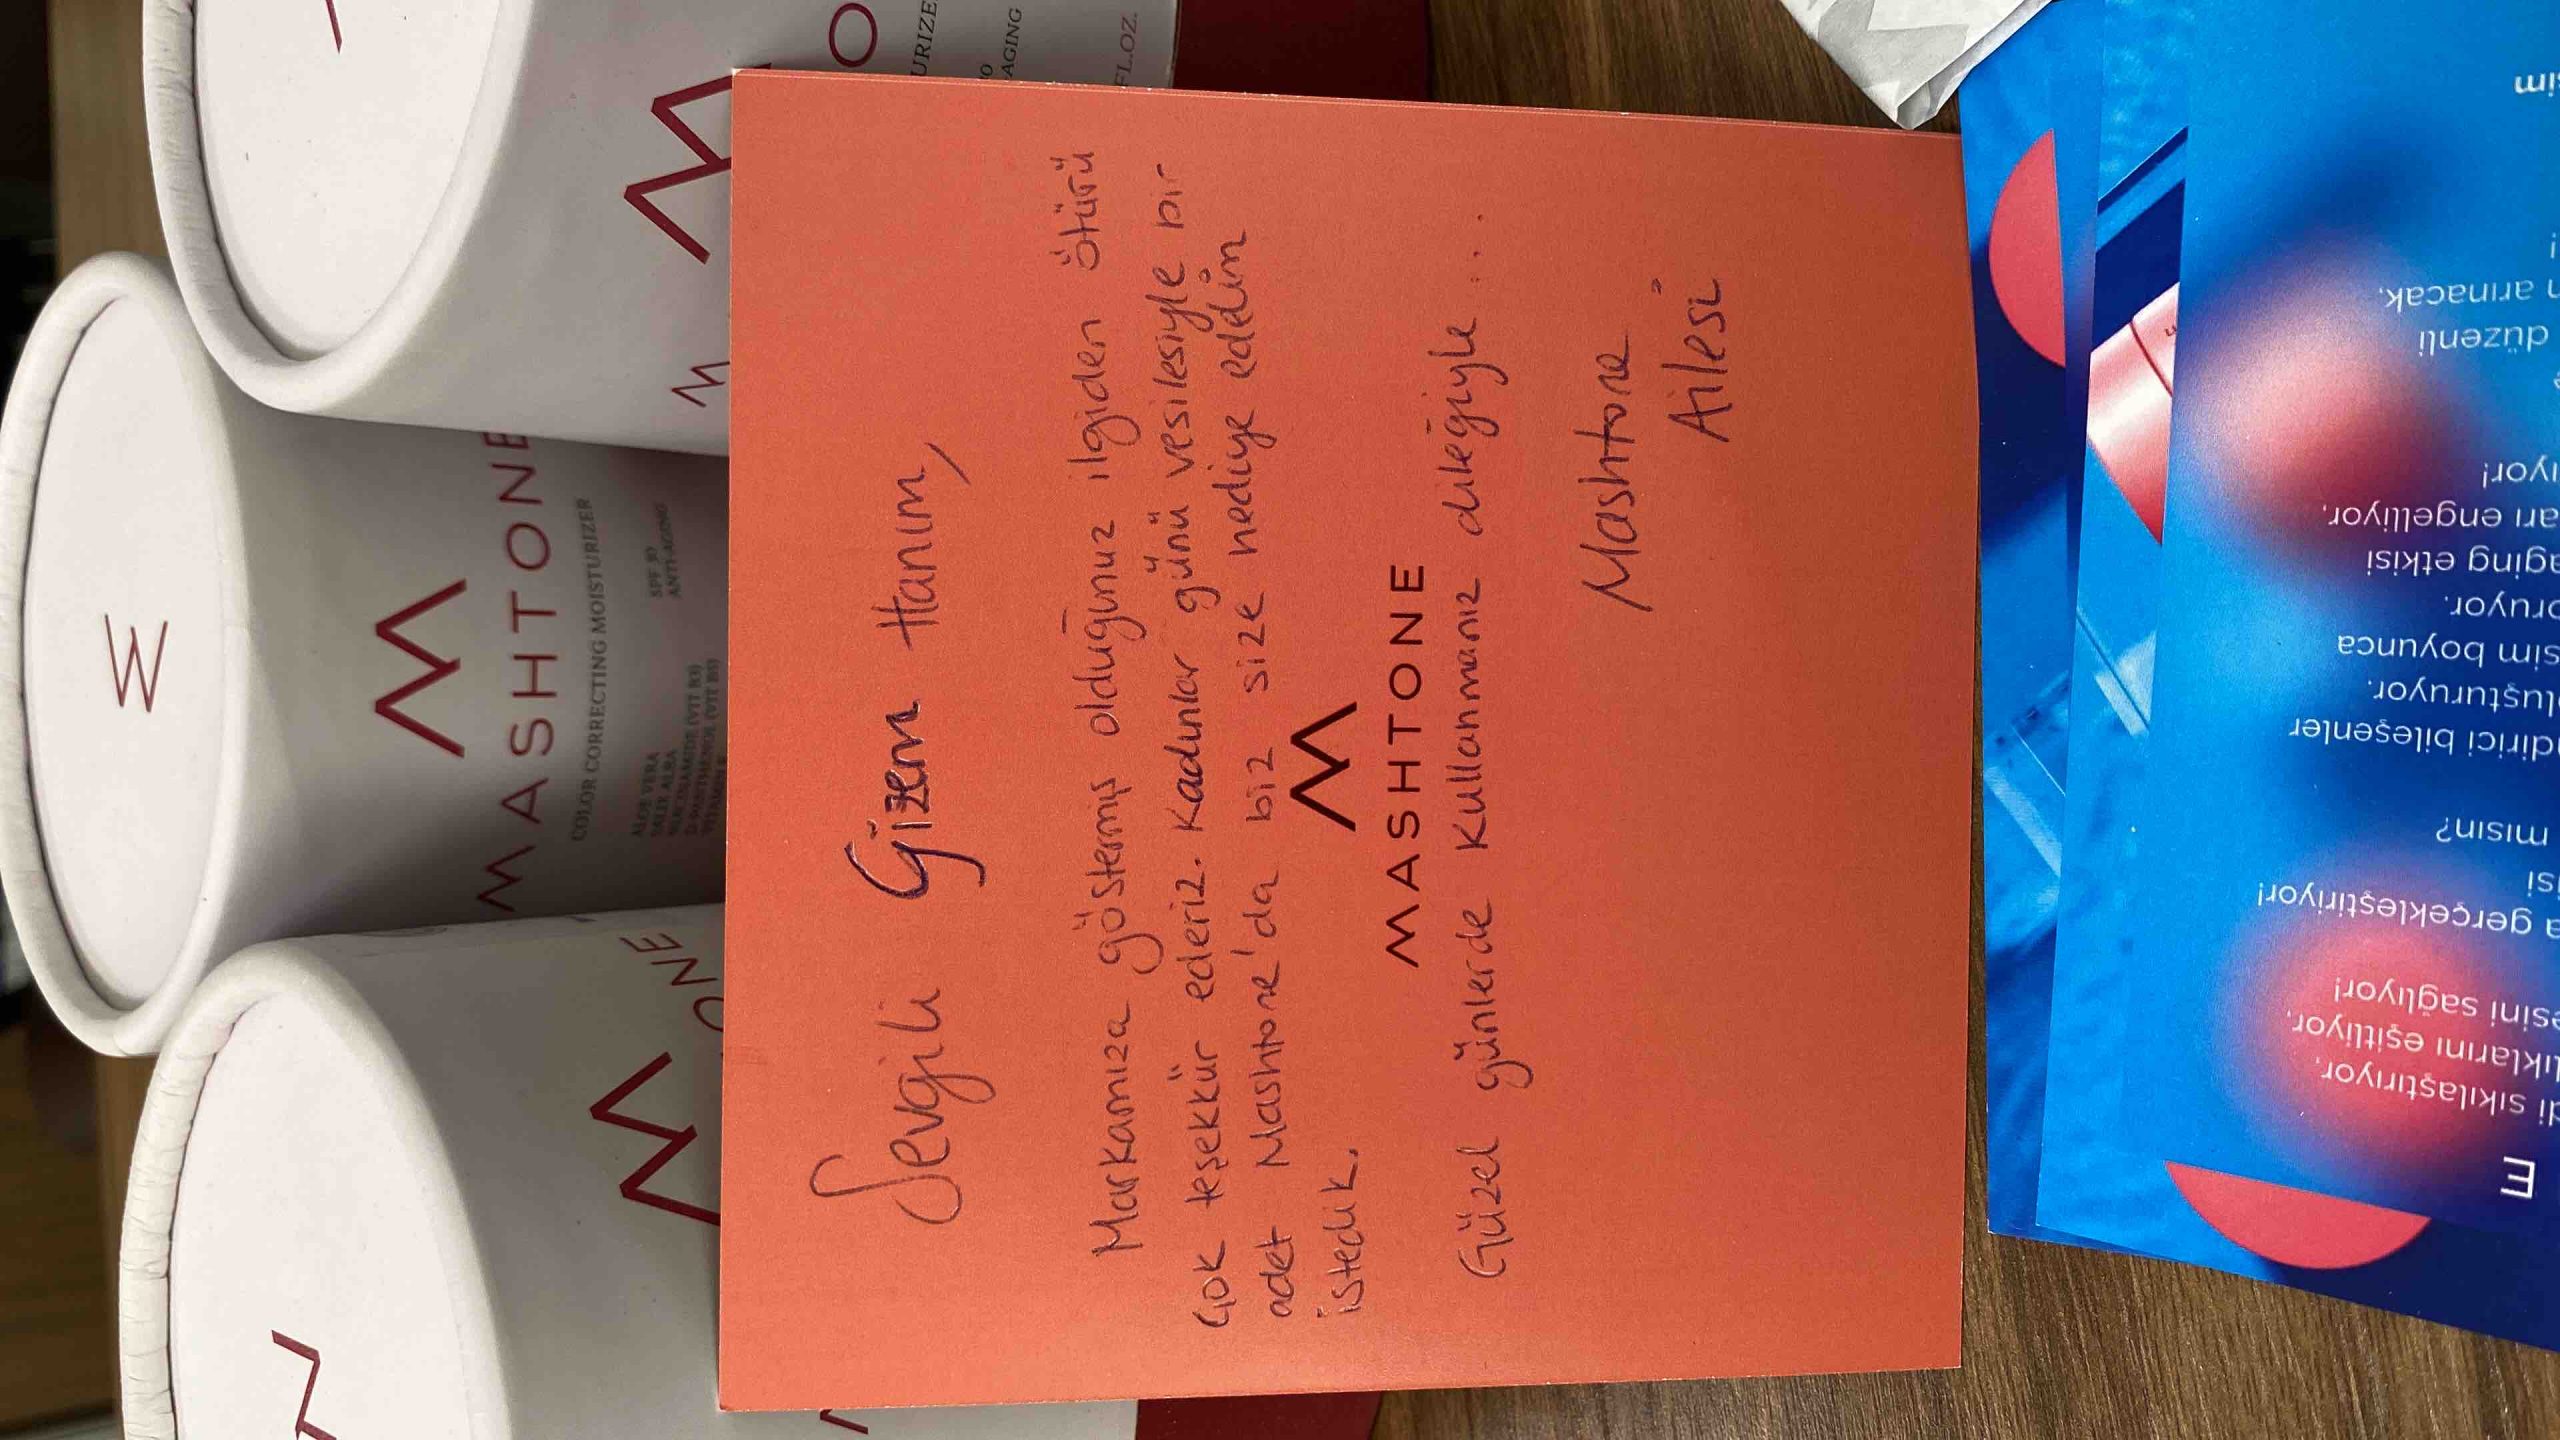 M
MASHTONE
COLOR CORRECTING MOISTURIZER
SPF 30
ANTI-AGING
ALOE VERA
NIACINAMIDE (VIT B3)
D-PANTHENOL (VIT B5)
URIZE
AGING
FL.OZ.
ONE
Sevgili Gizem Hanım,
Markamıza göstermiş olduğunuz ilgiden ötürü
çok teşekkür ederiz. Kadınlar günü vesilesiyle bir
adet Mashtone'da biz size hediye edelim
istedik.
MASHTONE
Güzel günlerde kullanmanız dileğiyle...
Mashtone
Ailesi
E
di sıkılaştırıyor,
lıklarını eşitliyor,
esini sağlıyor!
a gerçekleştiriyor!
isi
misin?
ndirici bileşenler
oluşturuyor.
sim boyunca
oruyor.
aging etkisi
arı engelliyor.
ıyor!
düzenli
n arınacak,
!
sim